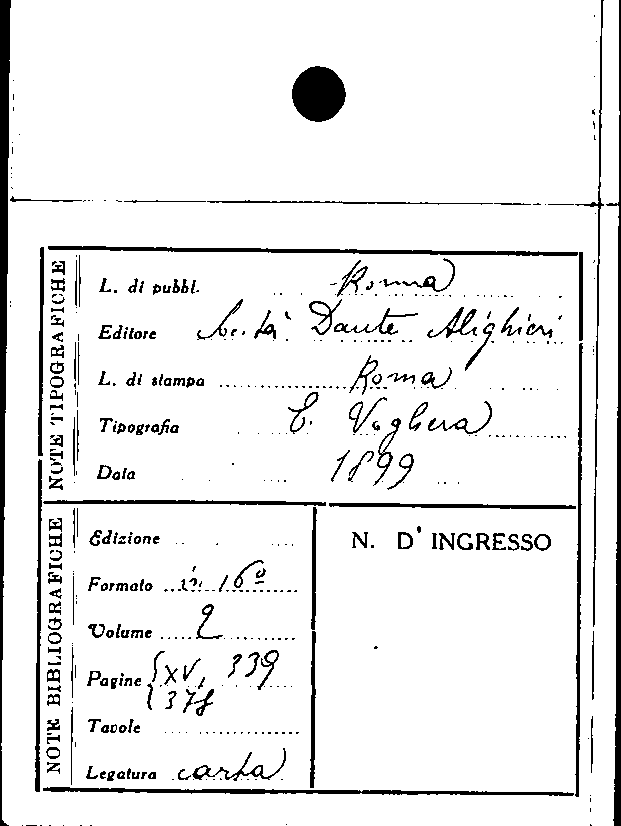 NOTE TIPOGRAFICHE
L. di pubbl. Roma
Editore Soc.tà Dante Alighieri
L. di stampa Roma
Tipografia E. Voghera
Data 1899
NOTE BIBLIOGRAFICHE
Edizione
Formato in 16º
Volume 2
Pagine XV, 339
378
Tavole
Legatura carta
N. D' INGRESSO